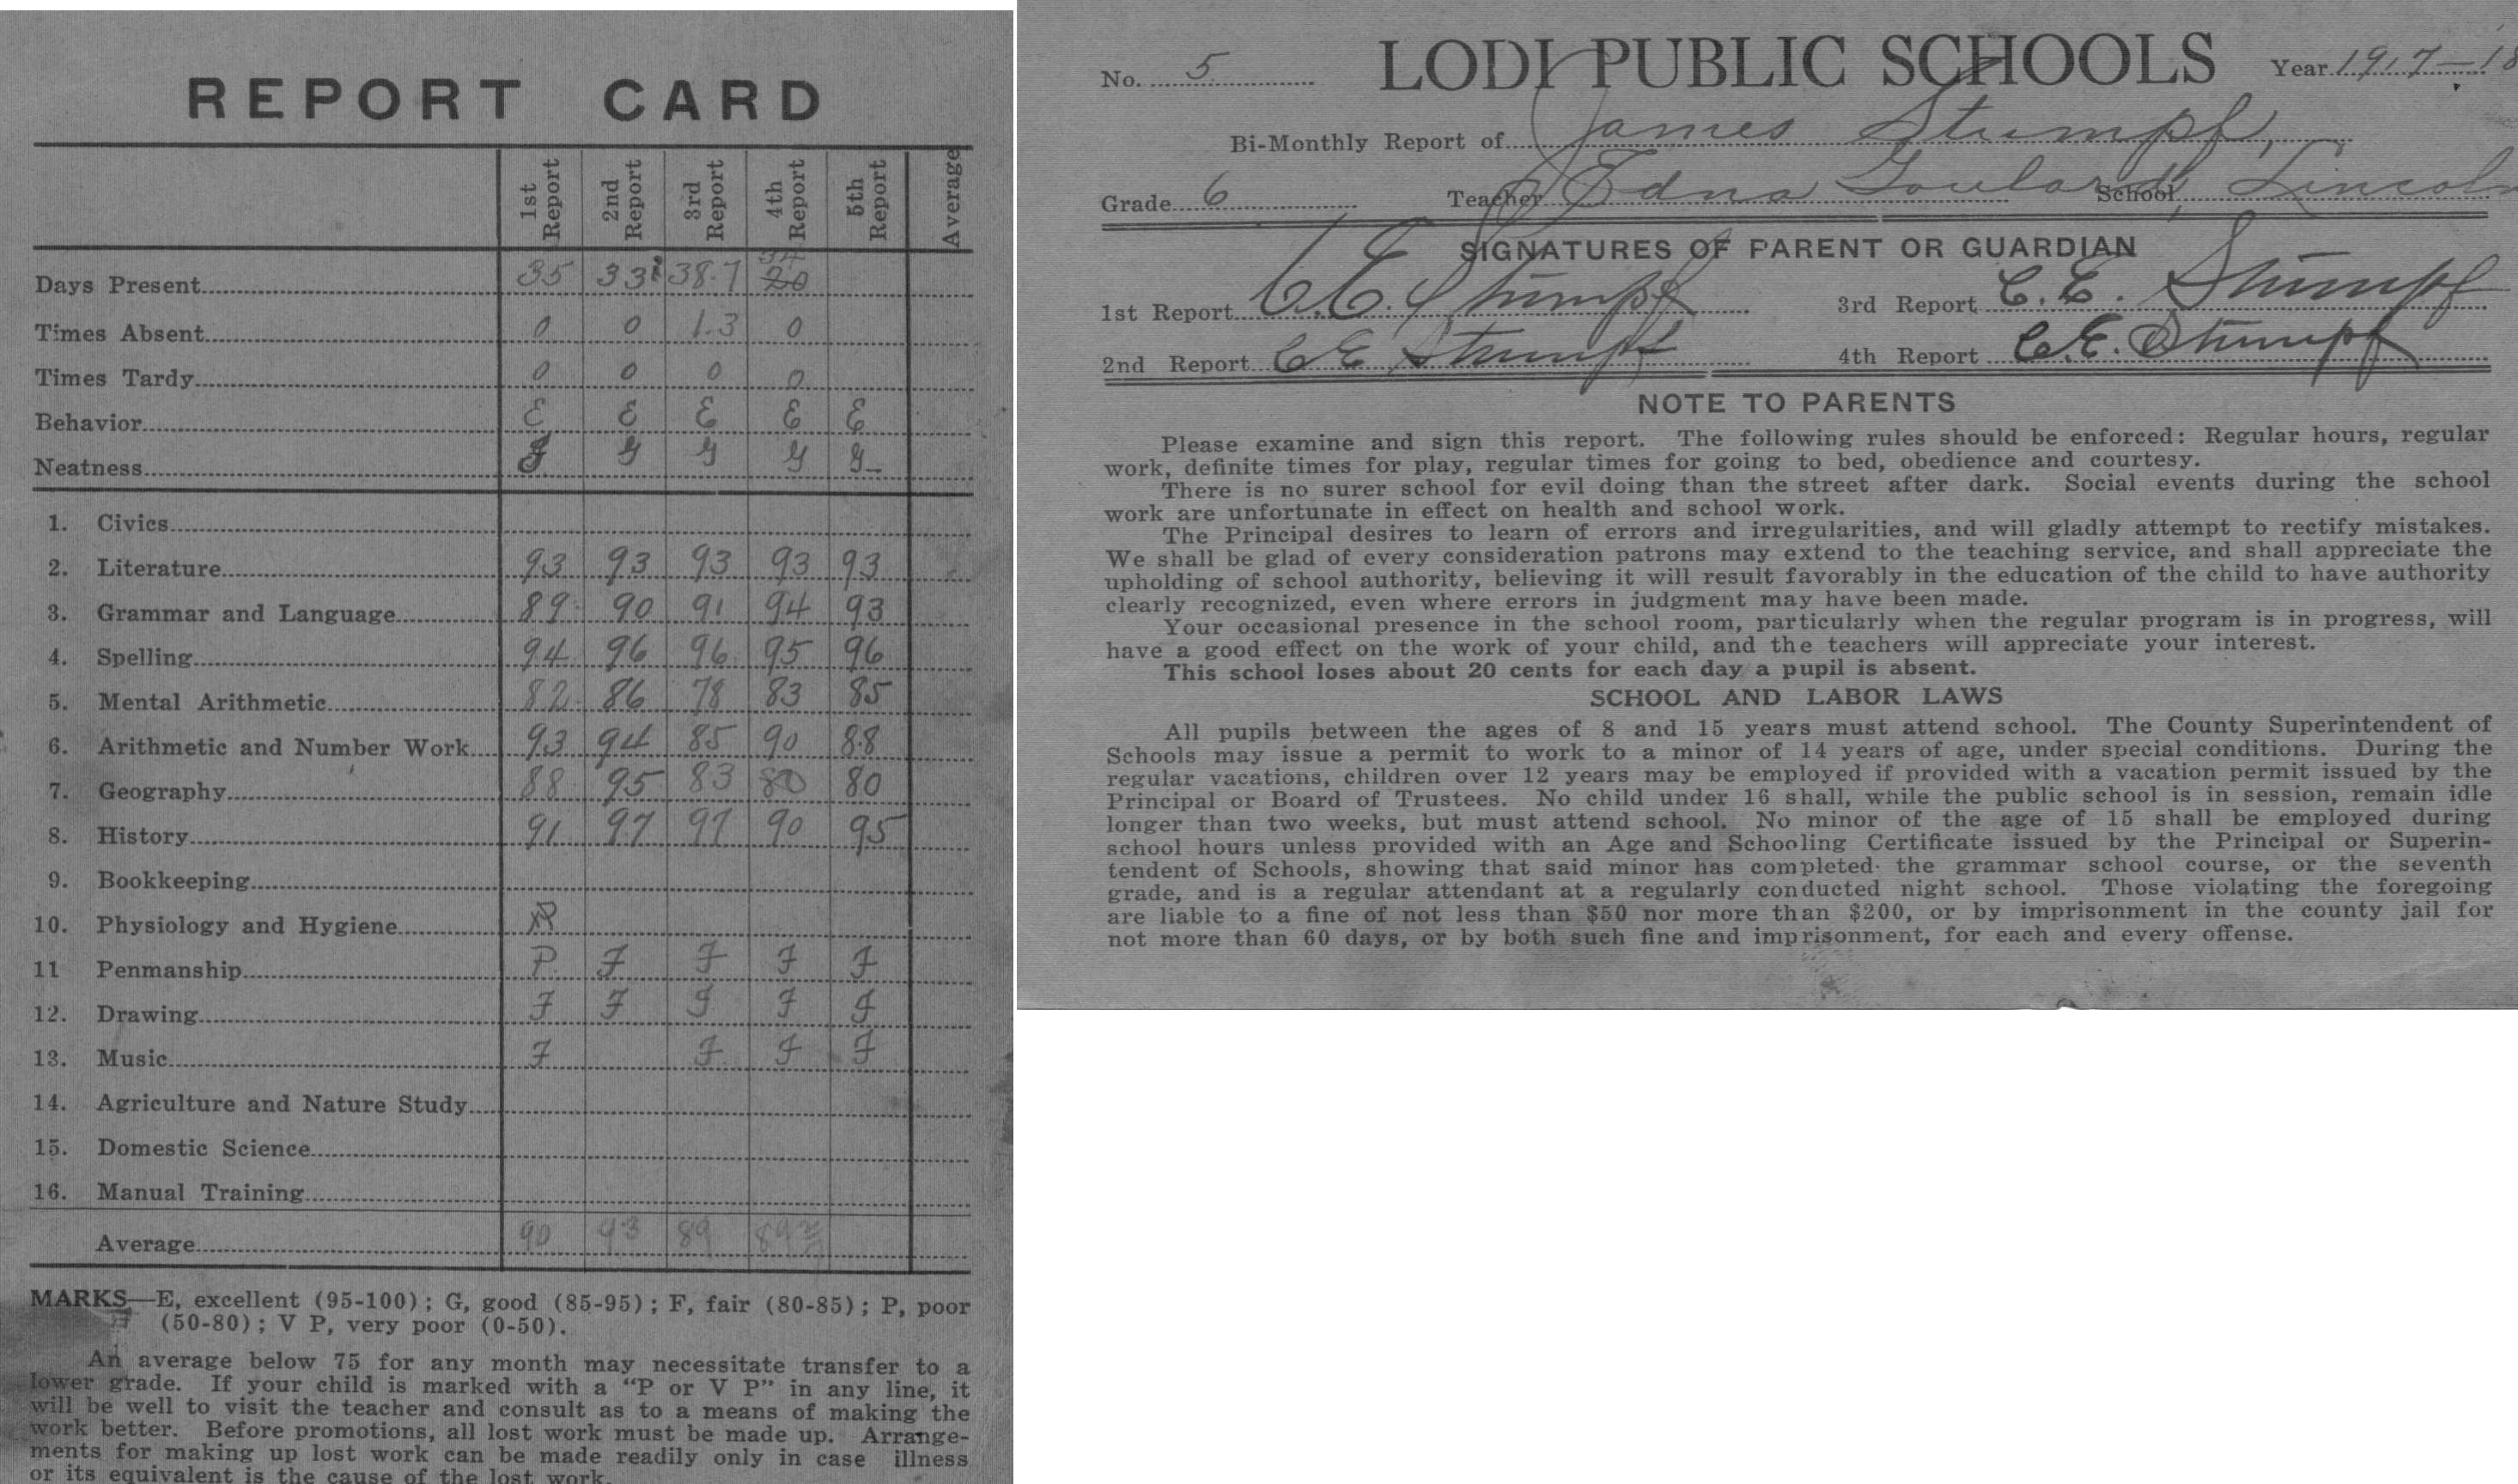 REPORT CARD
1st Report 2nd Report 3rd Report 4th Report 5th Report Average
Days Present 35 33 38.7 34 20
Times Absent 0 0 1.3 0
Times Tardy 0 0 0 0
Behavior E E E E E
Neatness G G G G-
1. Civics
2. Literature 93 93 93 93 93
3. Grammar and Language 89 90 91 94 93
4. Spelling 94 96 96 95 96
5. Mental Arithmetic 82 86 78 83 85
6. Arithmetic and Number Work 93 94 85 90 88
7. Geography 88 95 83 80 80
8. History 91 97 97 90 95
9. Bookkeeping
10. Physiology and Hygiene
11 Penmanship P F F F F
12. Drawing F F F F F
13. Music F F F F
14. Agriculture and Nature Study
15. Domestic Science
16. Manual Training
Average 90 93 89 89
MARKS—E, excellent (95-100); G, good (85-95); F, fair (80-85); P, poor
(50-80); V P, very poor (0-50).
An average below 75 for any month may necessitate transfer to a
lower grade. If your child is marked with a “P or V P” in any line, it
will be well to visit the teacher and consult as to a means of making the
work better. Before promotions, all lost work must be made up. Arrange-
ments for making up lost work can be made readily only in case illness
or its equivalent is the cause of the lost work.
No. 5 LODI PUBLIC SCHOOLS Year 1917-18
Bi-Monthly Report of James Stumpf,
Grade 6 Teacher Edna Goulard, School Lincoln
SIGNATURES OF PARENT OR GUARDIAN
1st Report C.E. Stumpf 3rd Report C.E. Stumpf
2nd Report CE Stumpf 4th Report C.E. Stumpf
NOTE TO PARENTS
Please examine and sign this report. The following rules should be enforced: Regular hours, regular
work, definite times for play, regular times for going to bed, obedience and courtesy.
There is no surer school for evil doing than the street after dark. Social events during the school
work are unfortunate in effect on health and school work.
The Principal desires to learn of errors and irregularities, and will gladly attempt to rectify mistakes.
We shall be glad of every consideration patrons may extend to the teaching service, and shall appreciate the
upholding of school authority, believing it will result favorably in the education of the child to have authority
clearly recognized, even where errors in judgment may have been made.
Your occasional presence in the school room, particularly when the regular program is in progress, will
have a good effect on the work of your child, and the teachers will appreciate your interest.
This school loses about 20 cents for each day a pupil is absent.
SCHOOL AND LABOR LAWS
All pupils between the ages of 8 and 15 years must attend school. The County Superintendent of
Schools may issue a permit to work to a minor of 14 years of age, under special conditions. During the
regular vacations, children over 12 years may be employed if provided with a vacation permit issued by the
Principal or Board of Trustees. No child under 16 shall, while the public school is in session, remain idle
longer than two weeks, but must attend school. No minor of the age of 15 shall be employed during
school hours unless provided with an Age and Schooling Certificate issued by the Principal or Superin-
tendent of Schools, showing that said minor has completed the grammar school course, or the seventh
grade, and is a regular attendant at a regularly conducted night school. Those violating the foregoing
are liable to a fine of not less than $50 nor more than $200, or by imprisonment in the county jail for
not more than 60 days, or by both such fine and imprisonment, for each and every offense.